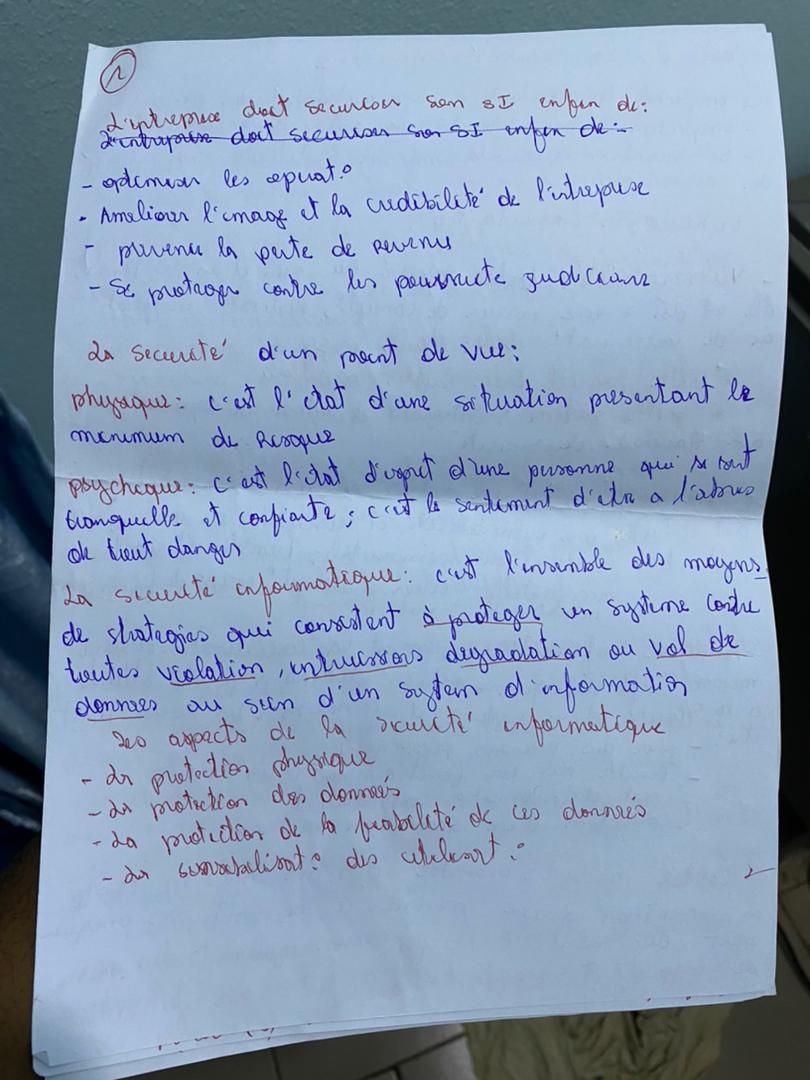 1
L'entreprise doit securiser son SI enfin de:
L'entreprise doit securiser son SI enfin de:-
- optimiser les opérat°
- Ameliorer l'image et la crédibilité de l'entreprise
- prevenir la perte de revenus
- Se proteger contre les poursuite judiciaire
La securité d'un point de vue:
physique: c'est l'état d'une situation présentant le
minimum de Risque
psychique: c'est l'état d'esprit d'une personne qui se sent
tranquille et confiante; c'est le sentiment d'etre a l'abris
de tout danger
La sécurité informatique: c'est l'ensemble des moyens
de strategies qui consistent à proteger un système contre
toutes violation, intrussions degradation ou vol de
données au sien d'un system d'information
Les aspects de la sécurité informatique
- La protection physique
- La protection des données
- La protection de la fiabilité de ces données
- La sensibilisat° des utilisat°